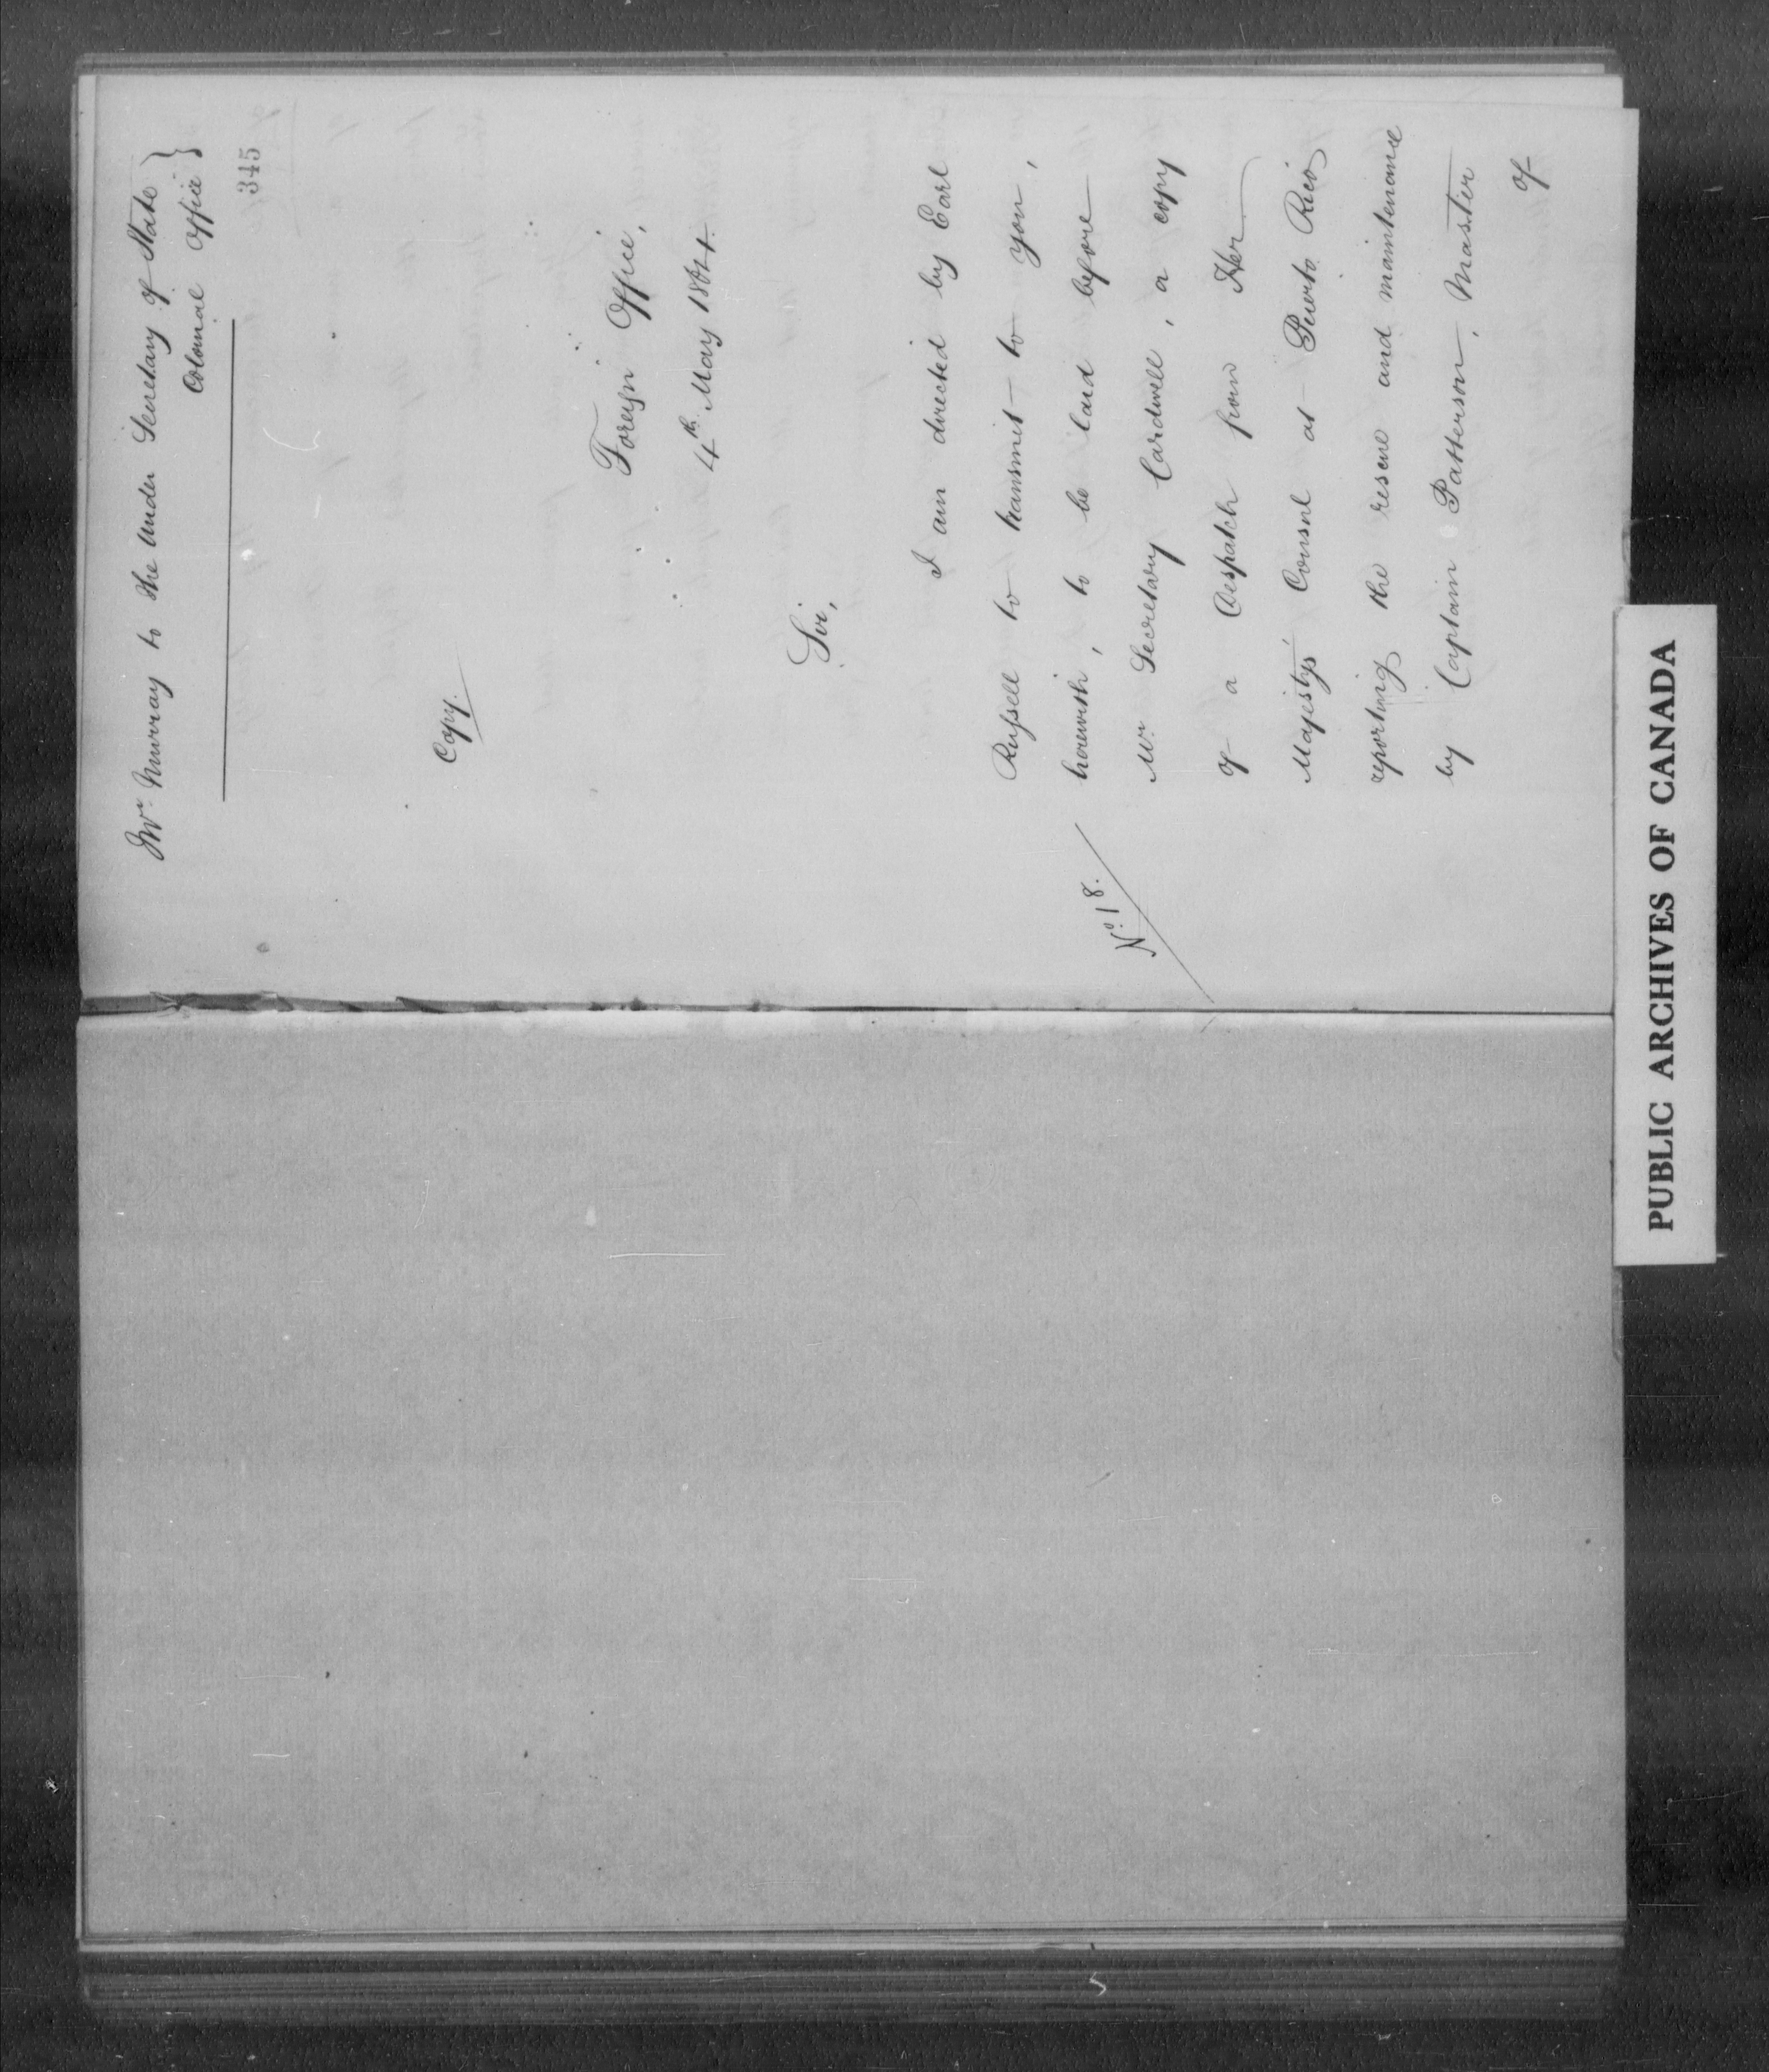 Mr. Murray to the Under Secretary of State }
Colonial Office }
345
Copy.
Foreign Office,
4th. May 1864.
Sir,
I am directed by Earl
Russell to transmit to you,
herewith, to be laid before
Mr. Secretary Cardwell, a copy
No. 18.
of a Despatch from Her
Majesty's Consul at Puerto Rico
reporting the rescue and maintenance
by Captain Patterson, Master
of
PUBLIC ARCHIVES OF CANADA